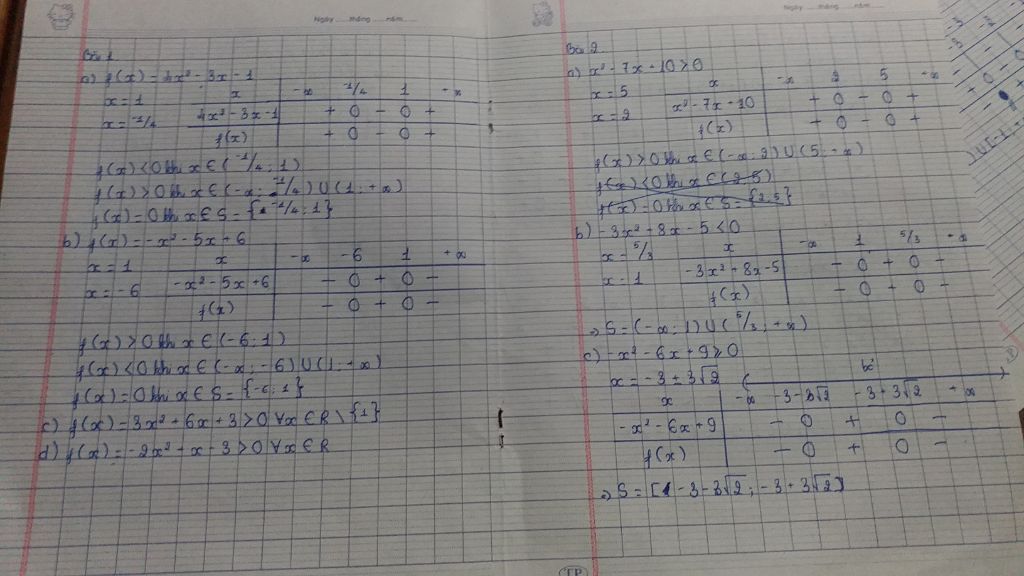 Ngày tháng năm
Bài 1
a) f(x) = 4x² - 3x - 1
x = 1
x = -1/4
x -∞ -1/4 1 +∞
4x² - 3x - 1 + 0 - 0 +
f(x) + 0 - 0 +
f(x) < 0 khi x ∈ (-1/4 ; 1)
f(x) > 0 khi x ∈ (-∞ ; -1/4) ∪ (1 ; +∞)
f(x) = 0 khi x ∈ S = {-1/4 ; 1}
b) f(x) = -x² - 5x + 6
x = 1
x = -6
x -∞ -6 1 +∞
-x² - 5x + 6 - 0 + 0 -
f(x) - 0 + 0 -
f(x) > 0 khi x ∈ (-6 ; 1)
f(x) < 0 khi x ∈ (-∞ ; -6) ∪ (1 ; +∞)
f(x) = 0 khi x ∈ S = {-6 ; 1}
c) f(x) = 3x² + 6x + 3 > 0 ∀x ∈ R \ {1}
d) f(x) = -2x² + x - 3 > 0 ∀x ∈ R
Ngày tháng năm
Bài 2
a) x² - 7x + 10 > 0
x = 5
x = 2
x -∞ 2 5 +∞
x² - 7x + 10 + 0 - 0 +
f(x) + 0 - 0 +
f(x) > 0 khi x ∈ (-∞ ; 2) ∪ (5 ; +∞)
f(x) < 0 khi x ∈ (2 ; 5)
f(x) = 0 khi x ∈ S = {2 ; 5}
b) -3x² + 8x - 5 < 0
x = 5/3
x = 1
x -∞ 1 5/3 +∞
-3x² + 8x - 5 - 0 + 0 -
f(x) - 0 + 0 -
⇒ S = (-∞ ; 1) ∪ (5/3 ; +∞)
c) -x² - 6x + 9 ≥ 0
x = -3 ± 3√2
x -∞ -3-3√2 -3+3√2 +∞
-x² - 6x + 9 - 0 + 0 -
f(x) - 0 + 0 -
⇒ S = [-3-3√2 ; -3+3√2]
TP